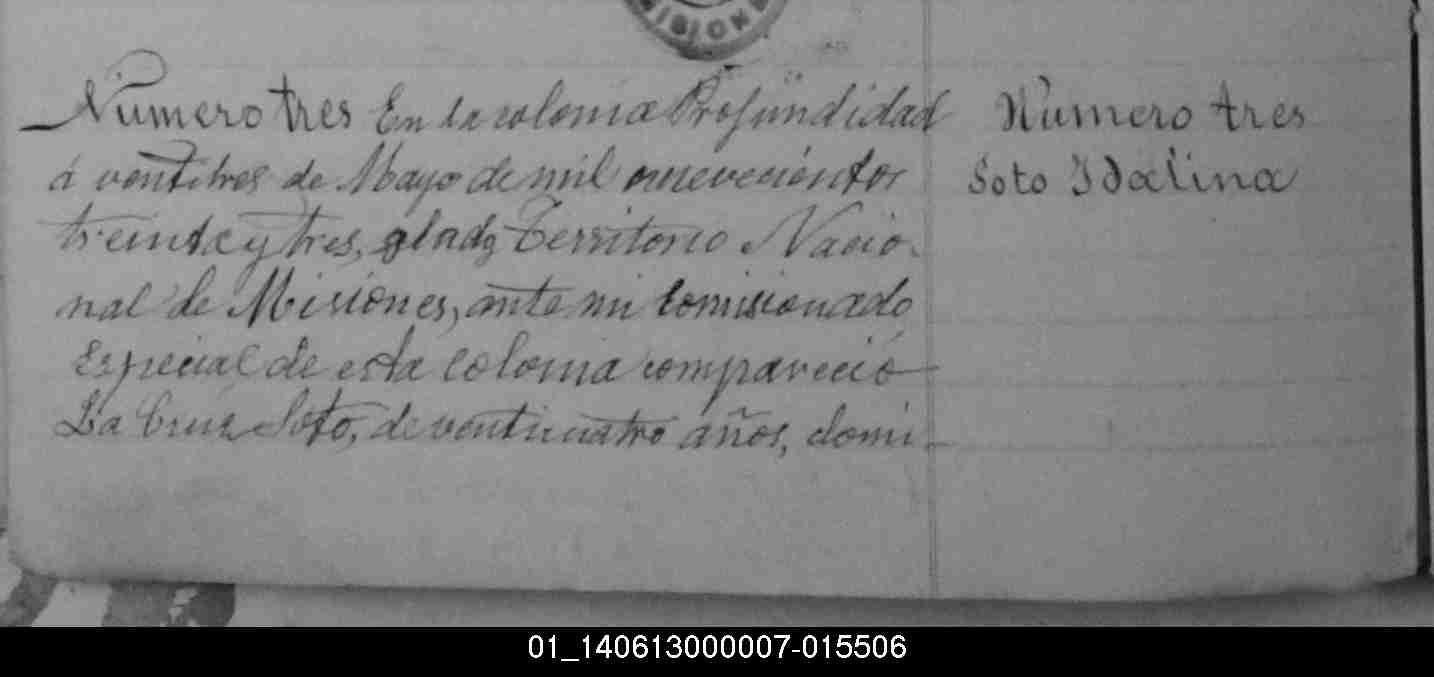 MISIONE
Numero tres En la colonia Profundidad
á ventitres de Mayo de mil novecientos
treinta y tres, Territorio Nacio-
nal de Misiones, ante mi Comisionado
Especial de esta colonia compareció
La Cruz Soto, de venticuatro años, domi-
Numero tres
Soto Idalina
01_140613000007-015506